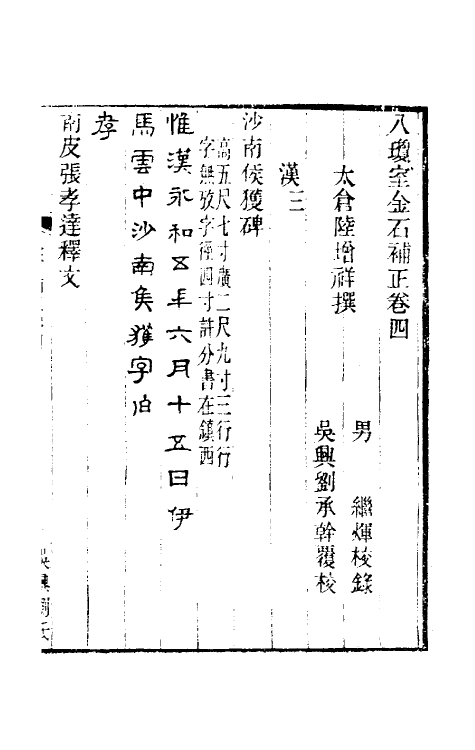 八瓊室金石補正卷四
太倉陸增祥撰
男　繼煇校錄
吳興劉承幹覆校
漢三
沙南侯獲碑
高五尺七寸廣二尺九寸三行行
字無攷字徑四寸許分書在鎮西
惟漢永和五年六月十五日伊
馬雲中沙南矦獲字伯
孝
南皮張孝達釋文
吳興劉氏